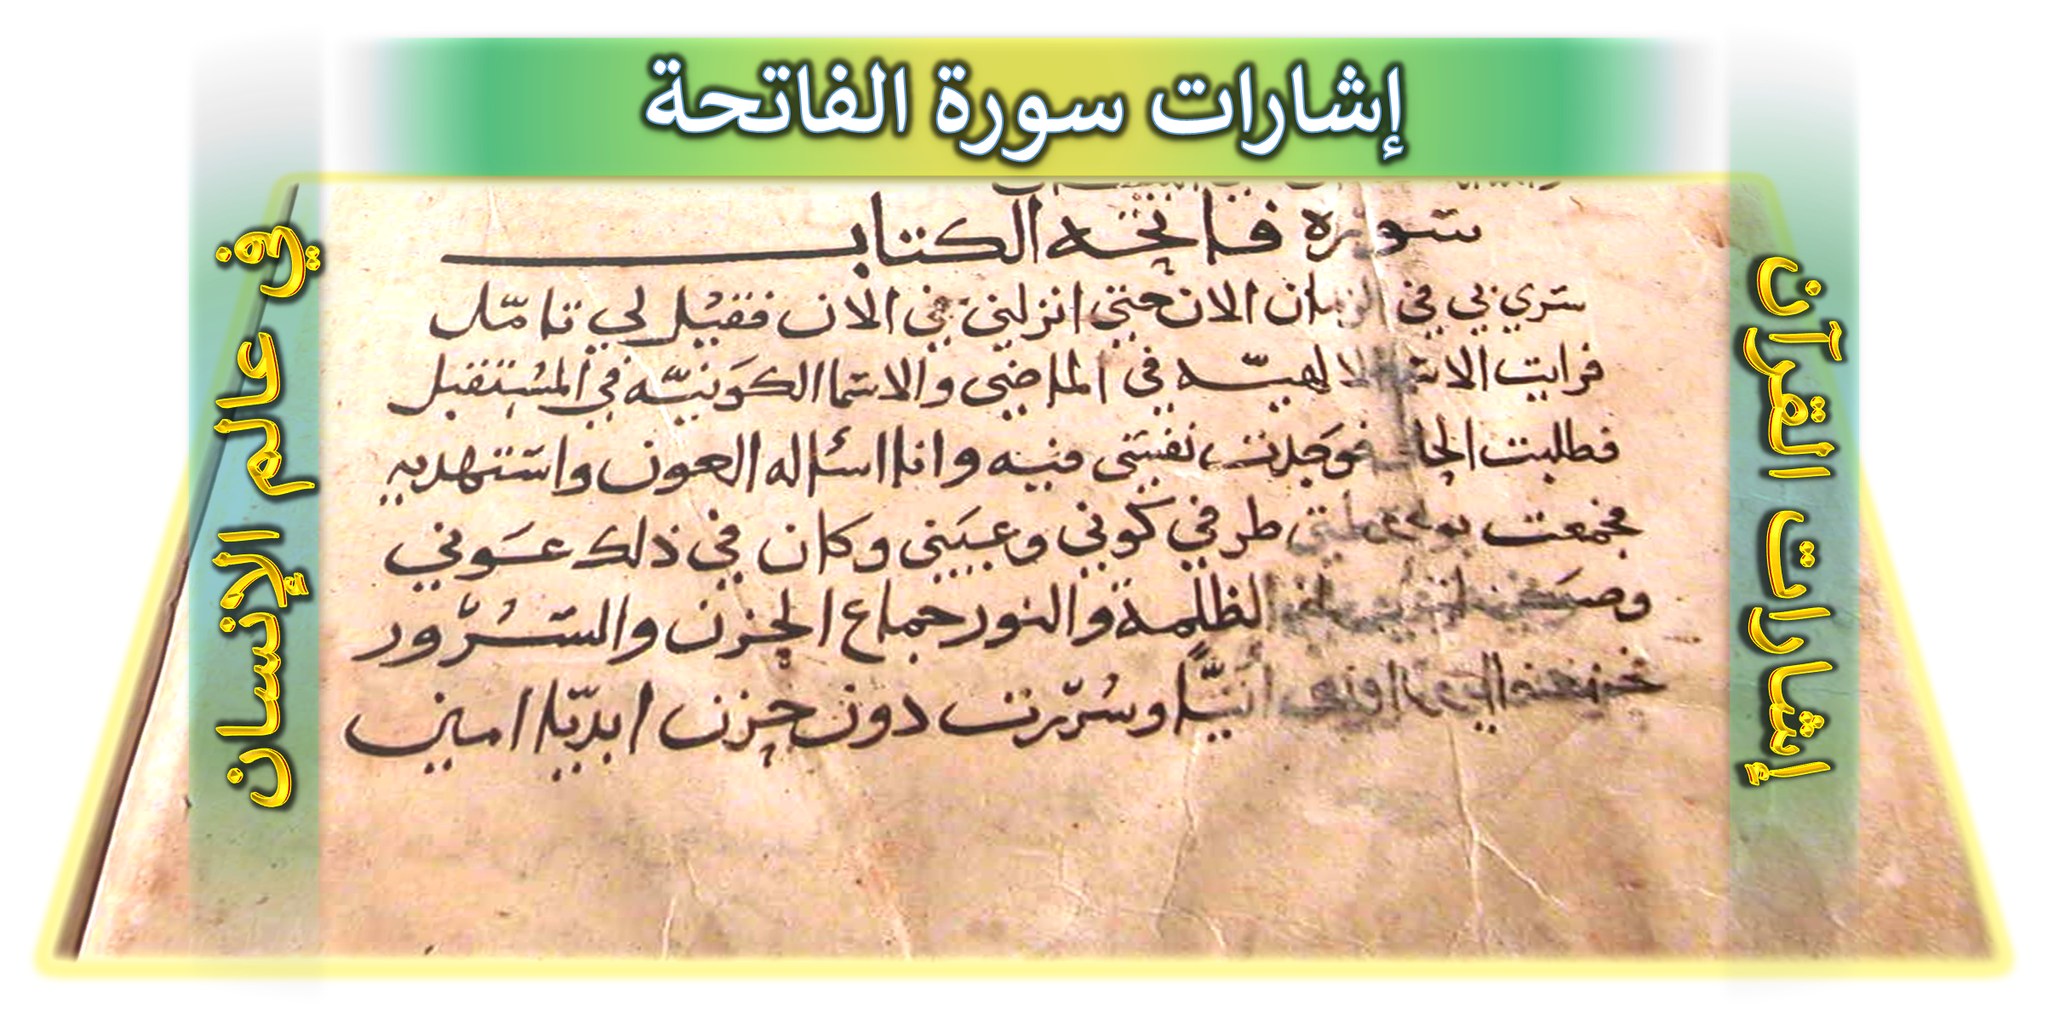 إشارات سورة الفاتحة
إشارات القرآن
في عالم الإنسان
سورة فاتحه الكتاب
سري بي في الزمان الان حتى انزلني في الان فقيل لي تامّل
فرايت الاسما الالهيّه في الماضي والاسما الكَونيّه في المسُتقبل
فطلبت الحال فوَجدت نفسَي فيه وانا اساله العون واستهديه
فجمعت طرفي كوني وعيَني وكان في ذلك عَوني
الظلمة والنور جماع الحزن والسُّرور
وسُرّرت دون حزن ابديّا امين